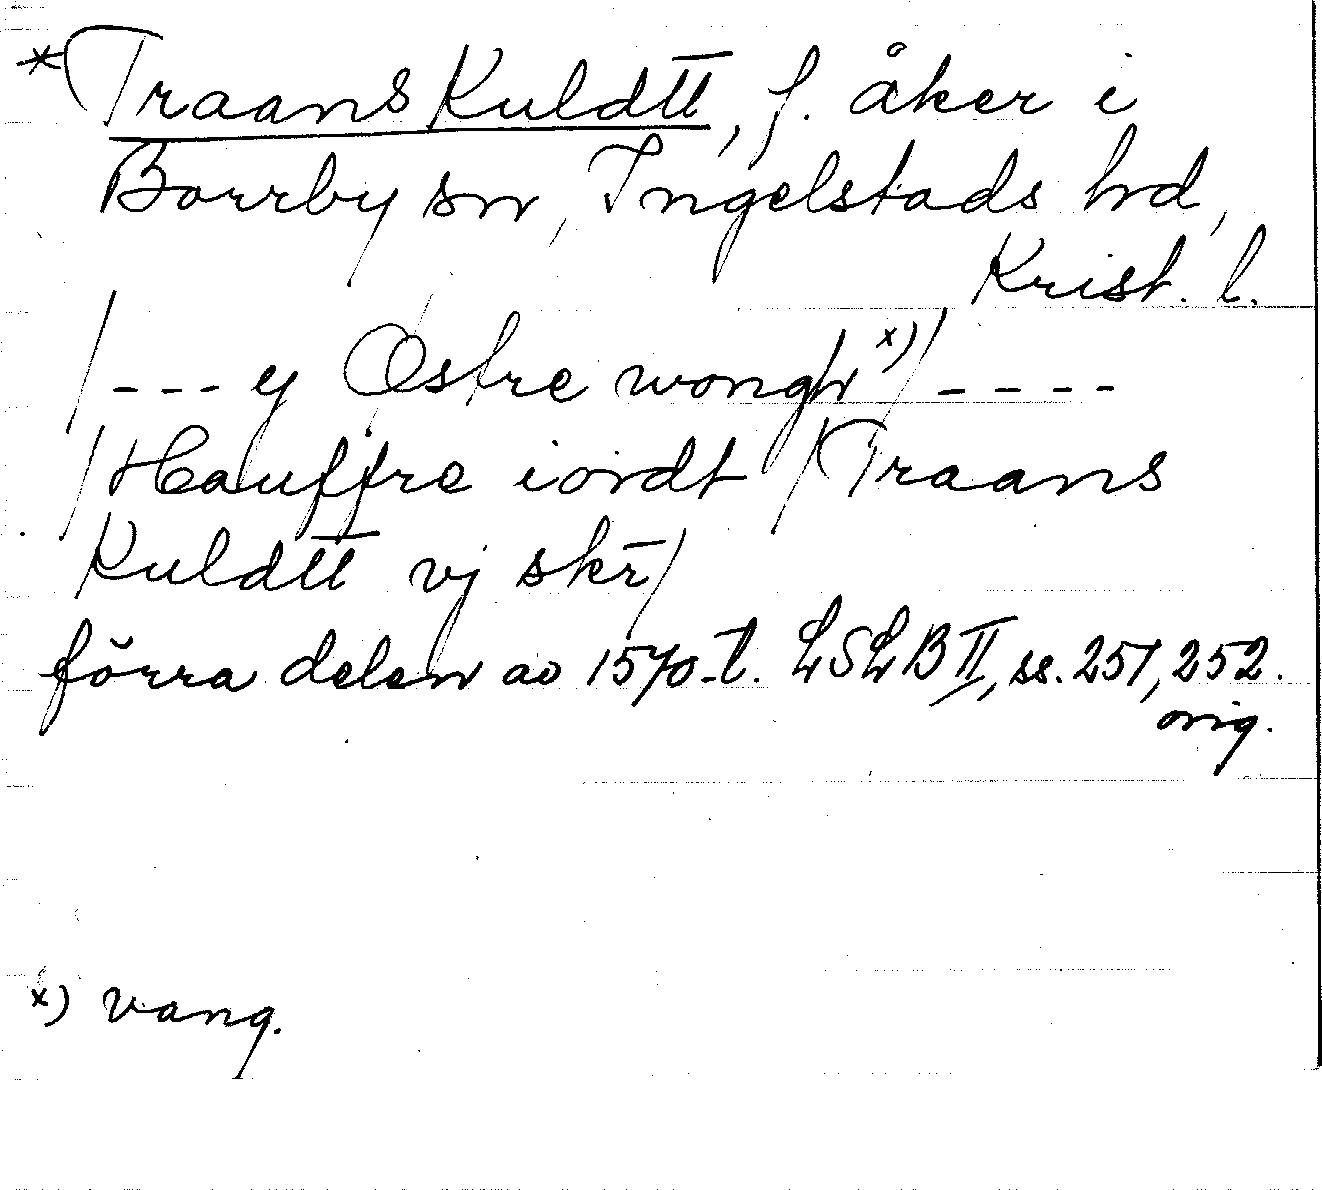 *Traans Kuldtt̅, f. åker i
Borrby sn, Ingelstads hd,
Krist. l.
/--- ij Østre wongh x)/----
/Hauffre iordt/Traans
Kuldtt̅ vj skr̅/
förra delen av 1570-t. LSLB II, ss. 251, 252.
orig.
x) vang.